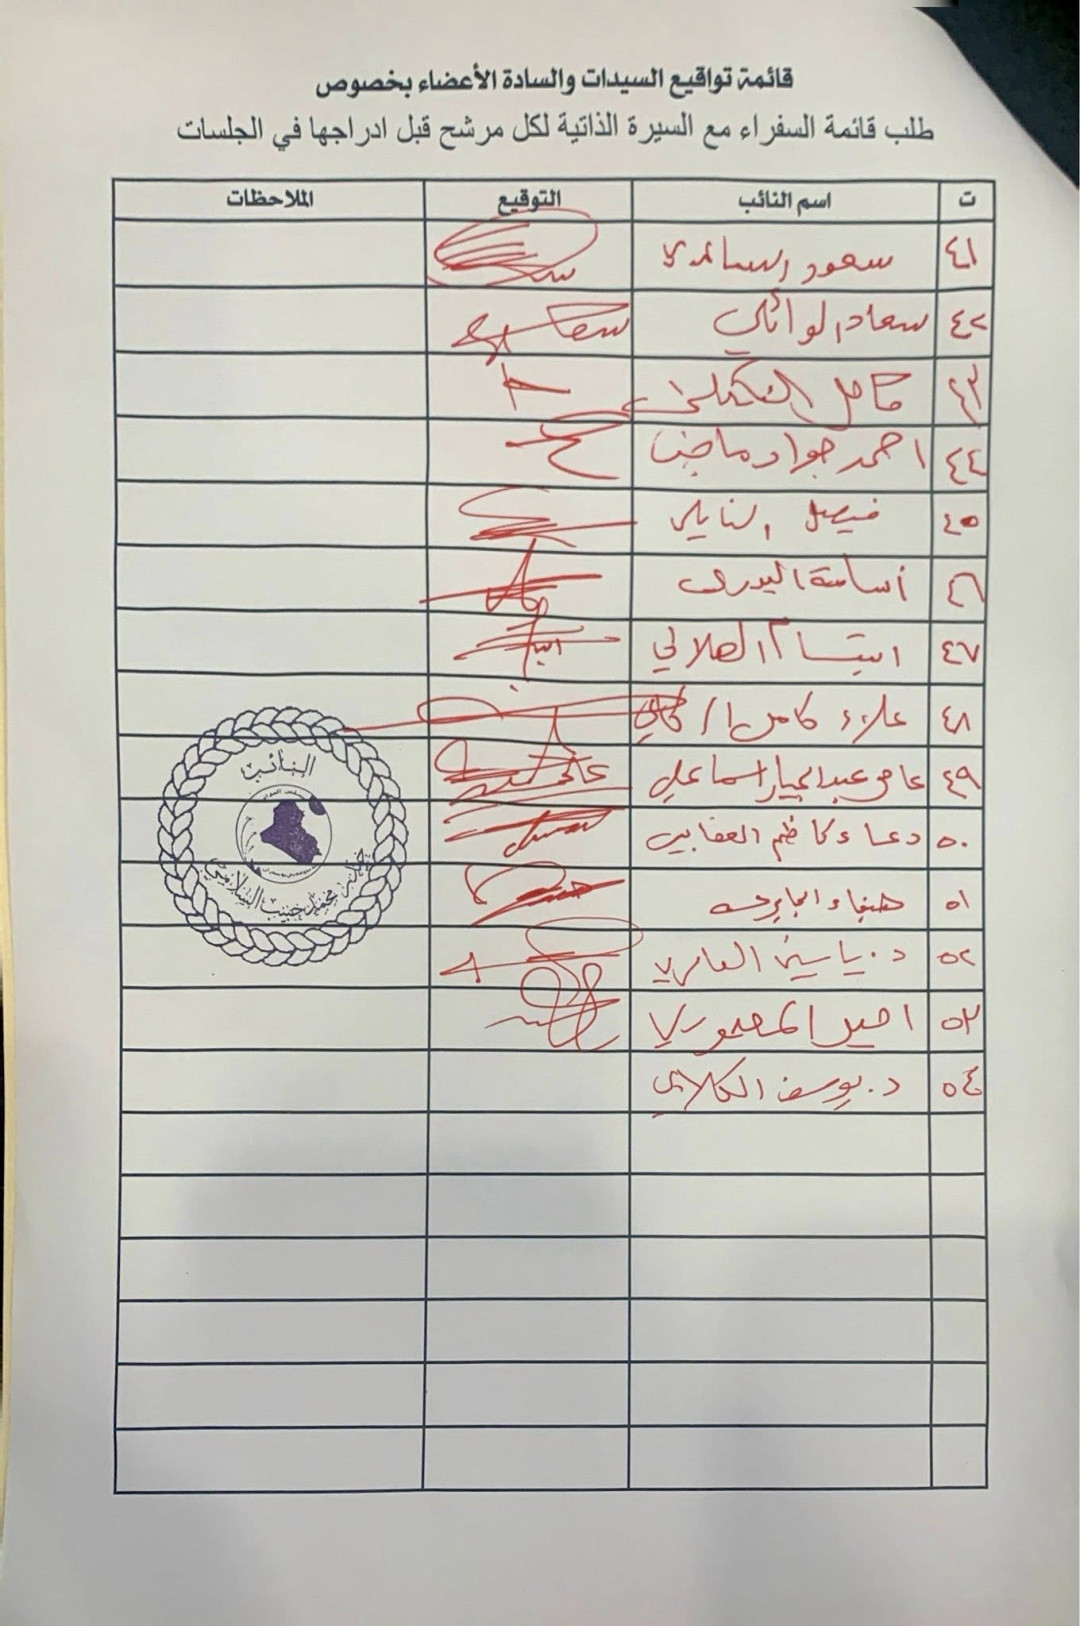 قائمة تواقيع السيدات والسادة الأعضاء بخصوص
طلب قائمة السفراء مع السيرة الذاتية لكل مرشح قبل ادراجها في الجلسات
ت اسم النائب التوقيع الملاحظات
٤١ سعود الساعدي
٤٢ سعاد الوائلي
٤٣ كامل العكيلي
٤٤ احمد جواد
٤٥ فيصل النايلي
٤٦ أسامة البدري
٤٧ ابتسام الهلالي
٤٨ علاء كامل
٤٩ عامر عبد الجبار اسماعيل
٥٠ دعاء كاظم
٥١ هيفاء الجابري
٥٢ د. ياسين العامري
٥٣ امير المعموري
٥٤ د. يوسف الكلابي
النائب